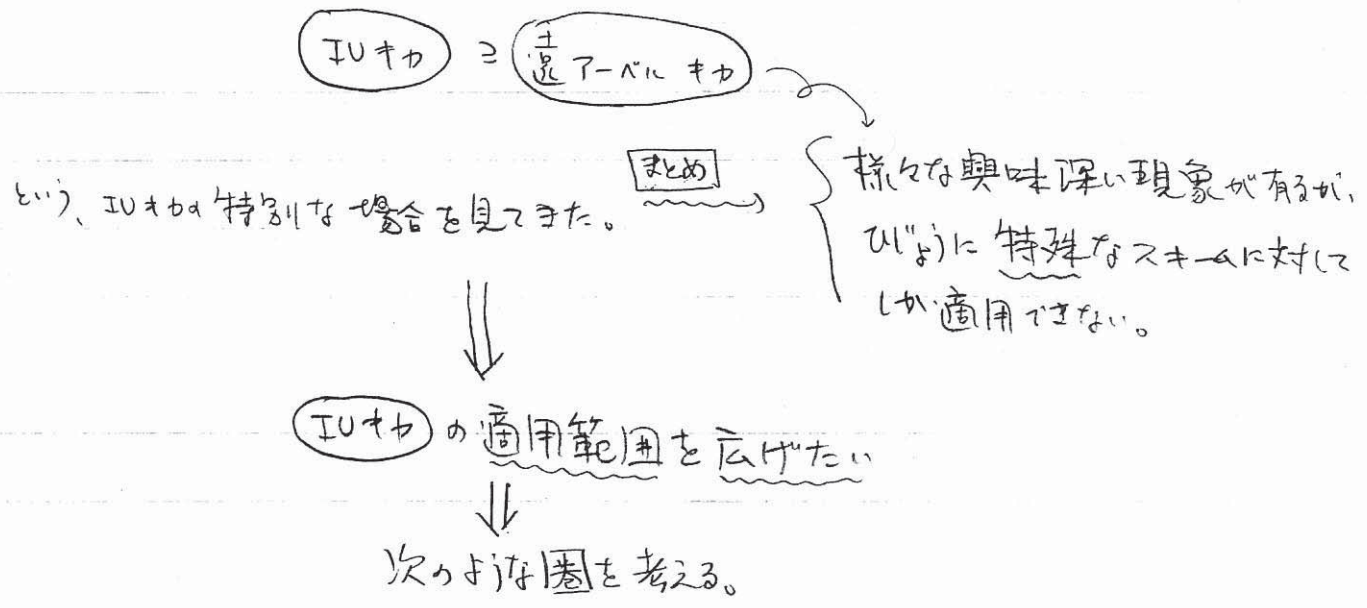 IUキカ ⊇ 遠アーベルキカ
という、IUキカの特別な場合を見てきた。
まとめ
様々な興味深い現象が有るが、
ひじょうに特殊なスキームに対して
しか適用できない。
IUキカの適用範囲を広げたい
次のような圏を考える。